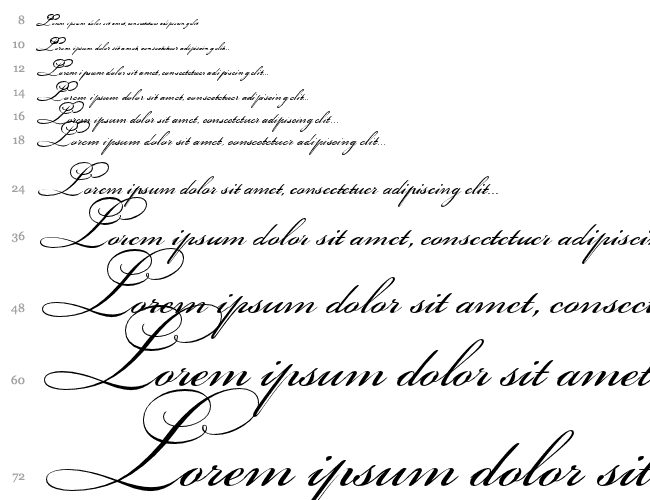 8 Lorem ipsum dolor sit amet, consectetuer adipiscing elit...
10 Lorem ipsum dolor sit amet, consectetuer adipiscing elit...
12 Lorem ipsum dolor sit amet, consectetuer adipiscing elit...
14 Lorem ipsum dolor sit amet, consectetuer adipiscing elit...
16 Lorem ipsum dolor sit amet, consectetuer adipiscing elit...
18 Lorem ipsum dolor sit amet, consectetuer adipiscing elit...
24 Lorem ipsum dolor sit amet, consectetuer adipiscing elit...
36 Lorem ipsum dolor sit amet, consectetuer adipisci
48 Lorem ipsum dolor sit amet, consect
60 Lorem ipsum dolor sit amet
72 Lorem ipsum dolor sit